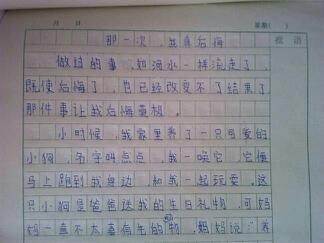 月 日 星期( )
那一次,我真后悔 批语
做过的事,如滴水一样流走了,
既使后悔了,也已经改变不了结果了
那件事让我后悔莫极。
小时候,我家里养了一只可爱的
小狗,名字叫点点,我一唤它,它便
马上跑到我身边,和我一起玩耍。这
只小狗是爸爸送我的生日礼物,可妈
妈一直不太喜有生的物,妈妈说:“养